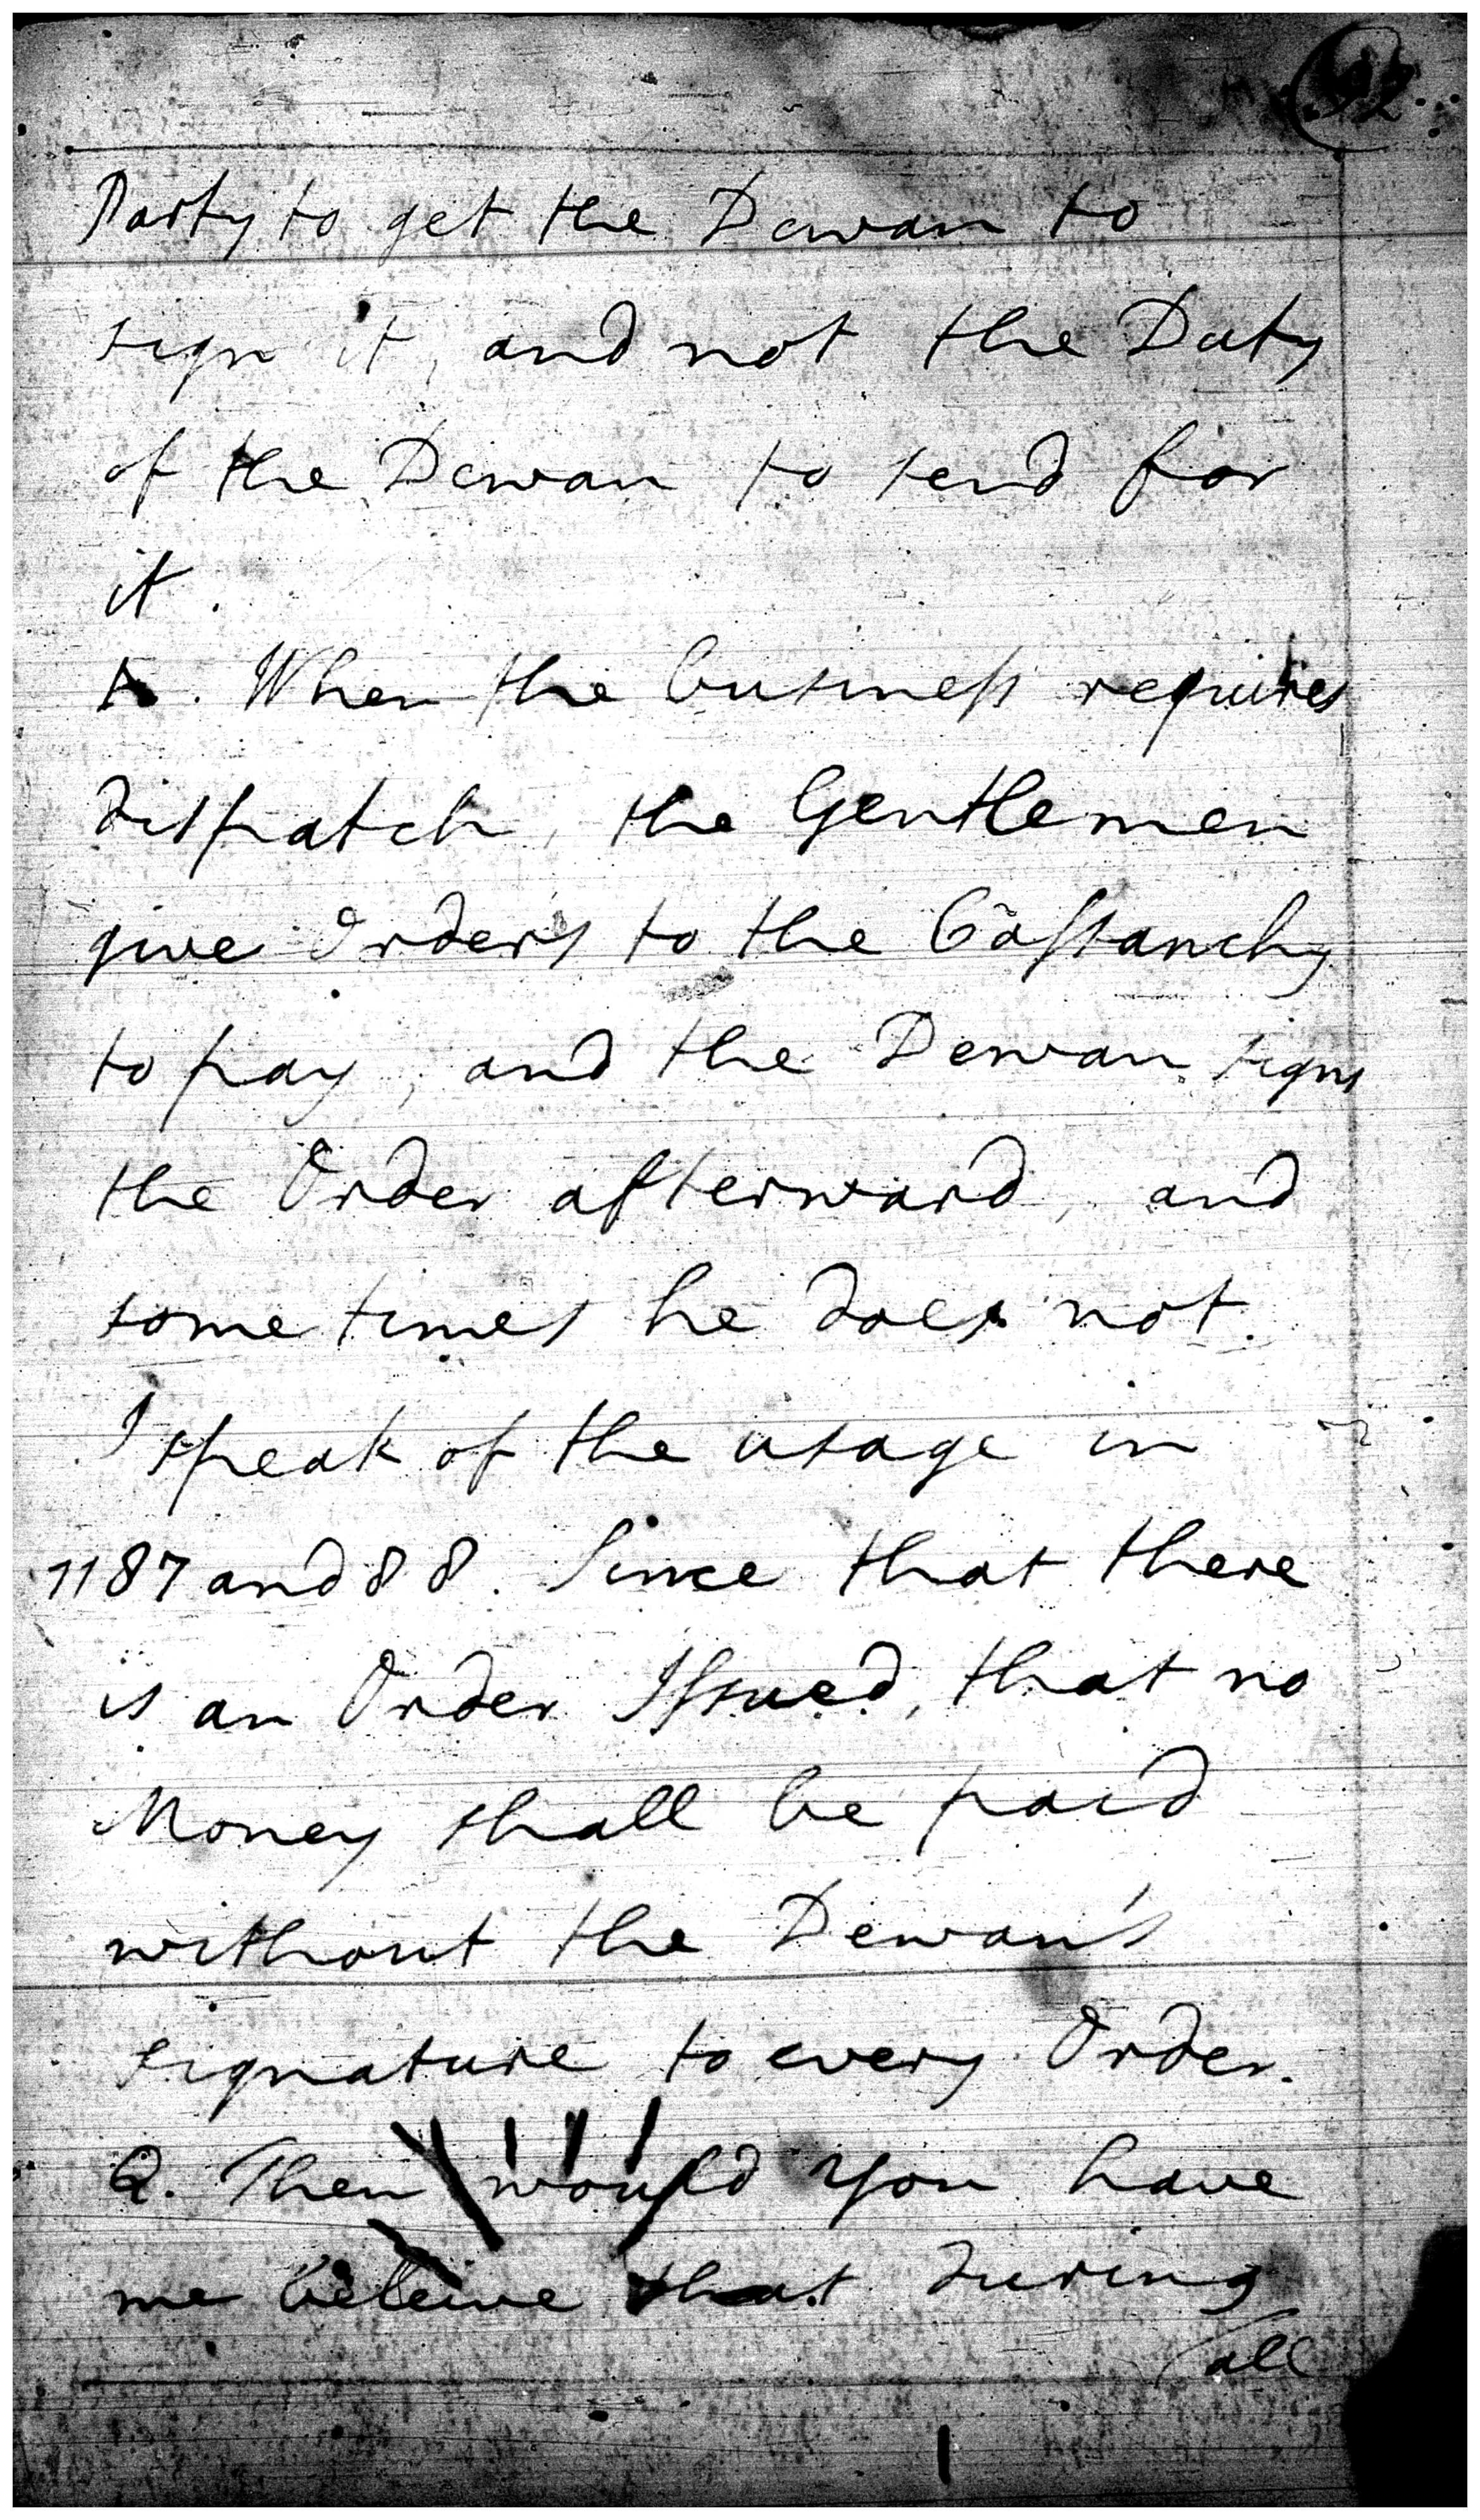 Party to get the Dewan to
sign it, and not the Duty
of the Dewan to send for
it.
A. When the business requires
dispatch, the Gentlemen
give Orders to the
to pay, and the Dewan signs
the Order afterward, and
some times he does not.
I speak of the usage in
1187 and 88. Since that there
is an Order Issued, that no
Money shall be paid
without the Dewan's
signature to every Order.
Q. Then would you have
me beleive that during
/all